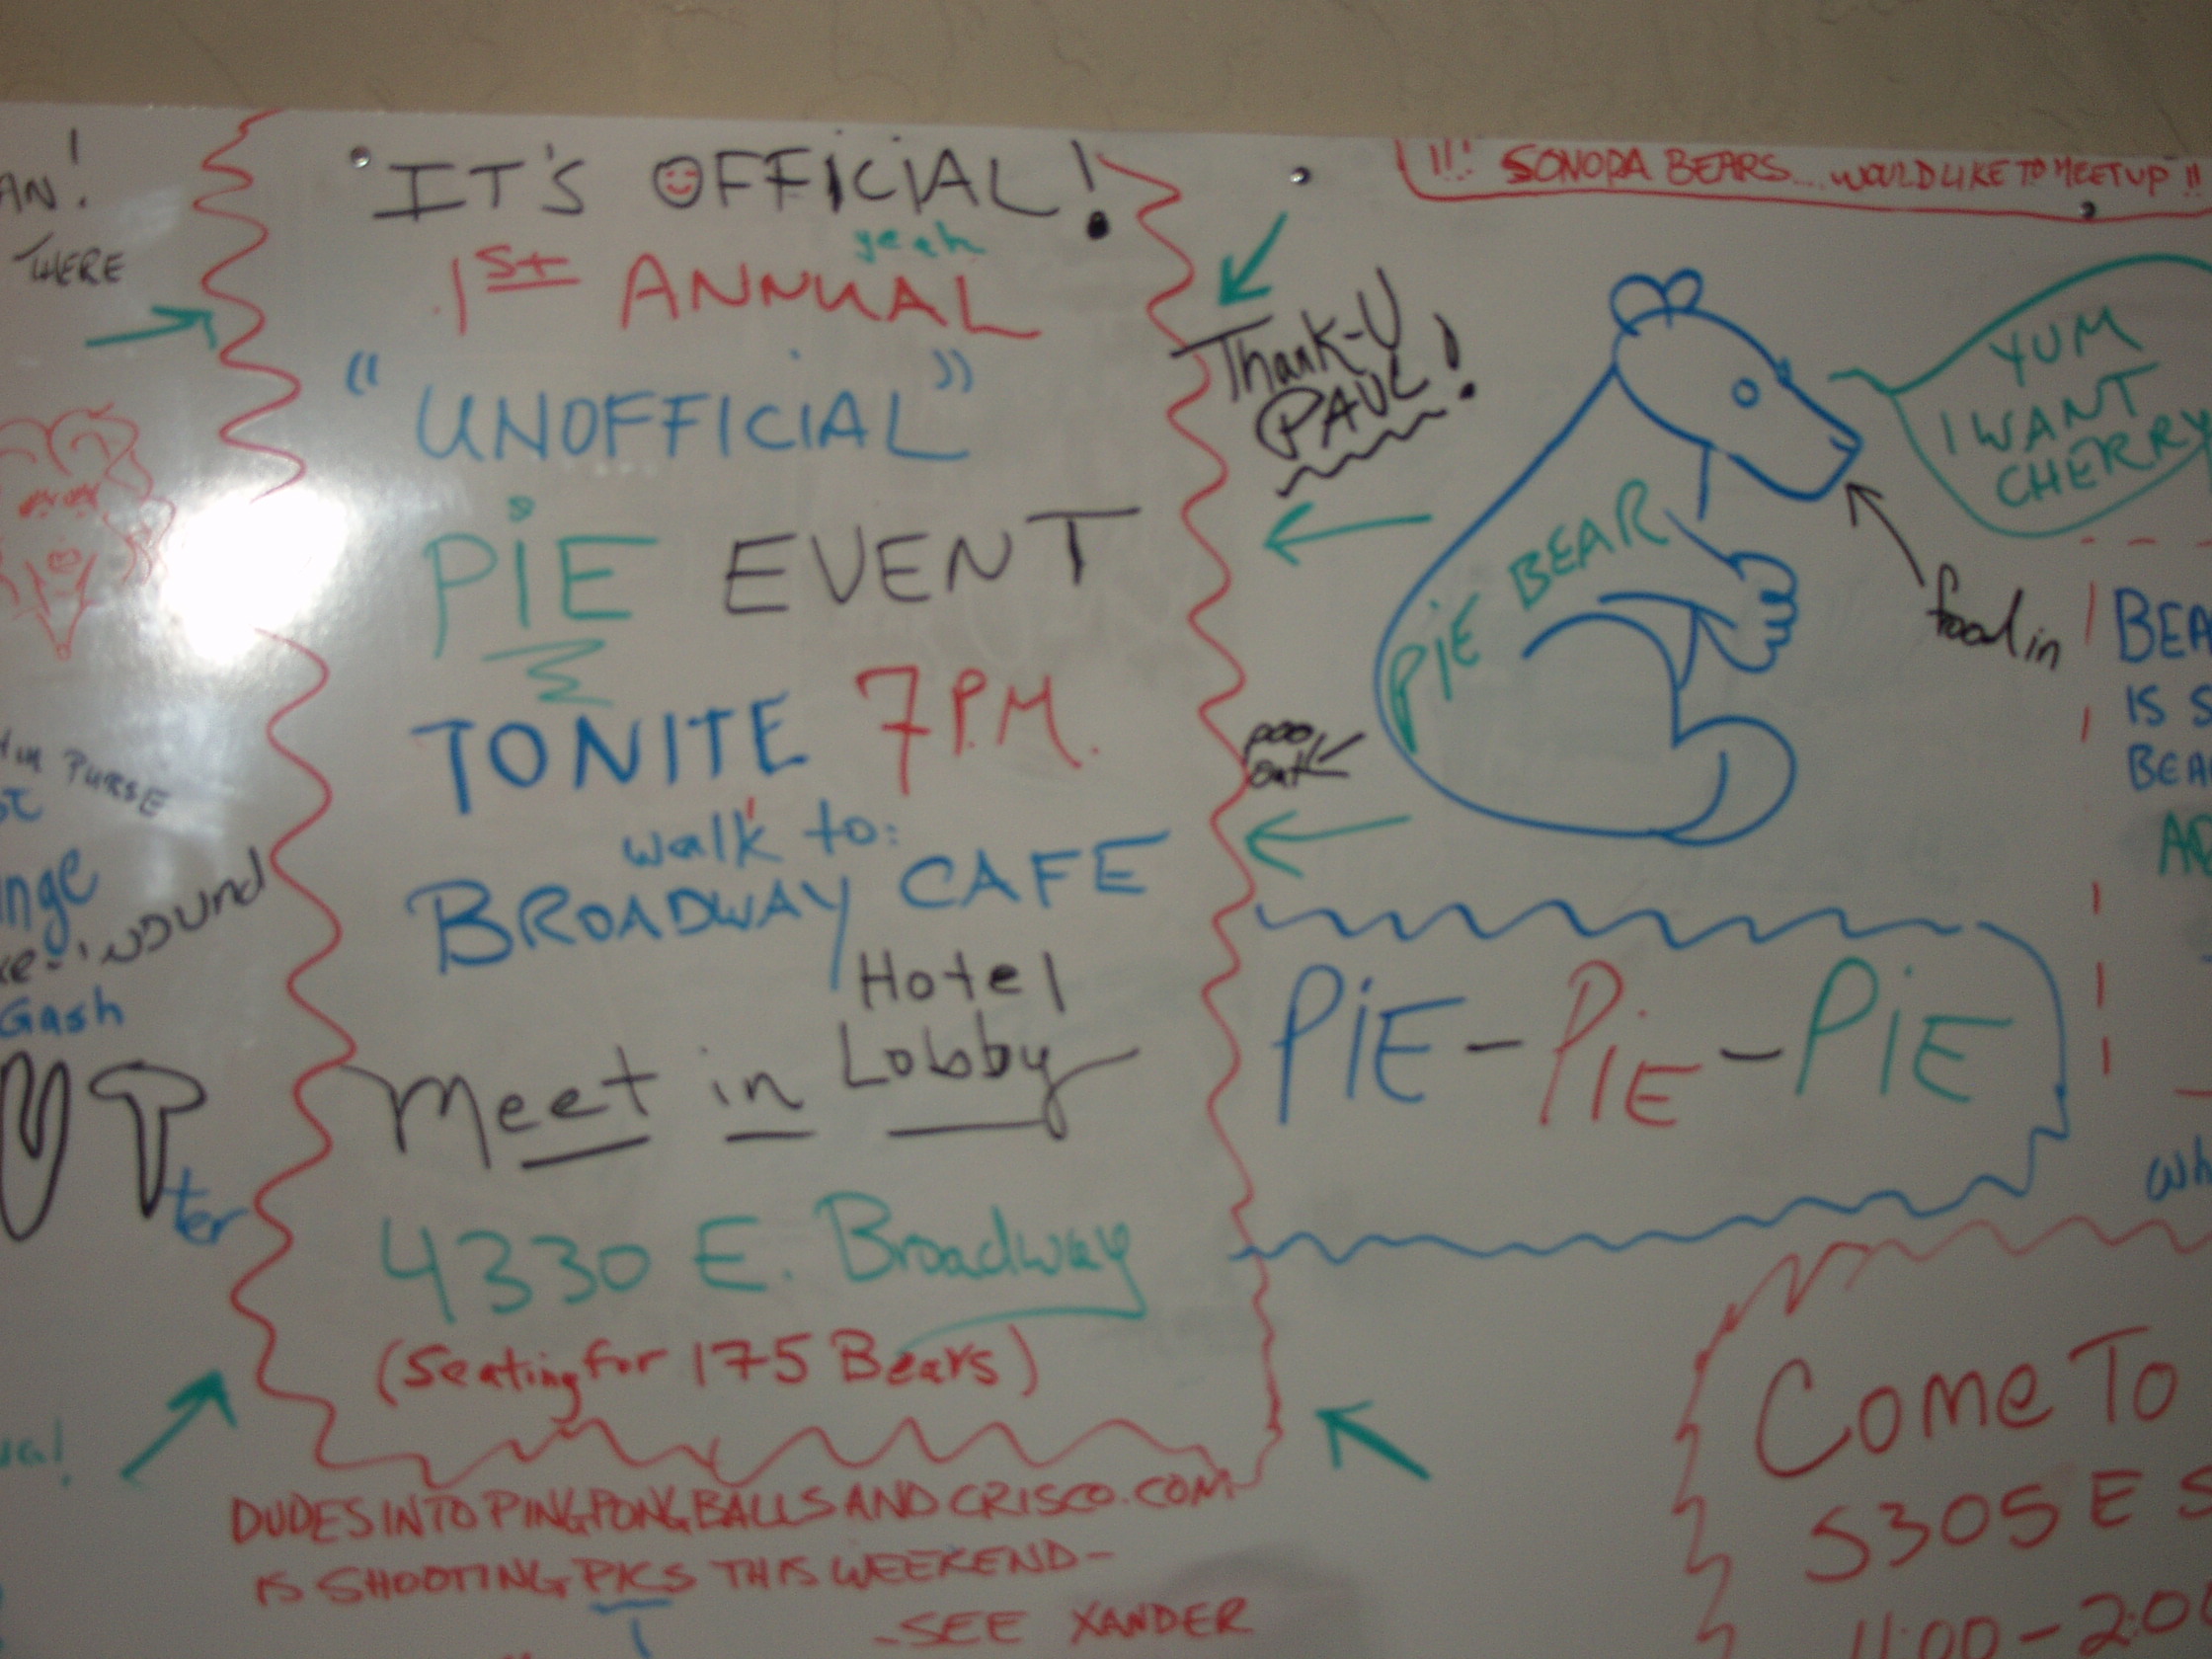 IT'S OFFICIAL!
yeah
1st ANNUAL
"UNOFFICIAL"
PiE EVENT
TONITE 7 P.M.
walk to:
BROADWAY CAFE
Meet in Hotel Lobby
4330 E. Broadway
(Seating for 175 Bears)
DUDESINTOPINGPONGBALLSANDCRISCO.COM
IS SHOOTING PICS THIS WEEKEND-
-SEE XANDER
!!! SONORA BEARS... WOULD LIKE TO MEET UP !!
Thank-U
PAUL!
YUM
I WANT
CHERRY
PiE BEAR
food in
poo
out
PiE-PiE-PiE
BEA
IS S
BEA
wh
Come To
5305 E S
11:00-2:00
AN!
THERE
PURSE
Gash
UT
ter